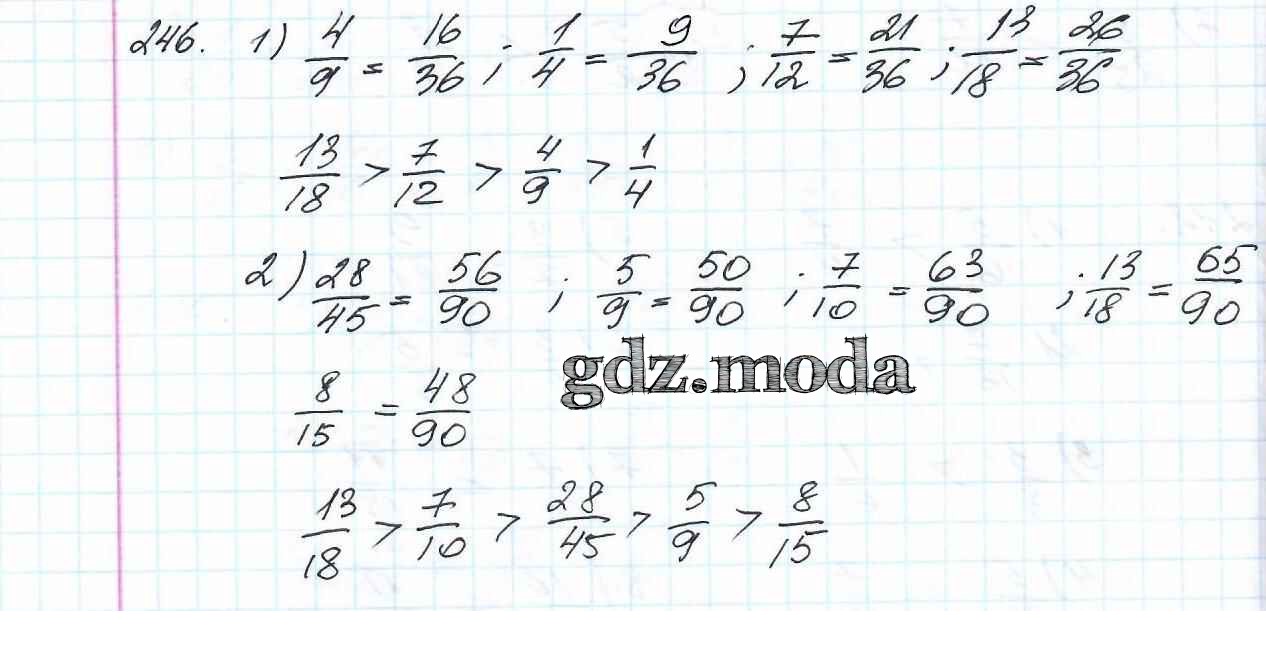 246. 1) 4/9 = 16/36 ; 1/4 = 9/36 ; 7/12 = 21/36 ; 13/18 = 26/36
13/18 > 7/12 > 4/9 > 1/4
2) 28/45 = 56/90 ; 5/9 = 50/90 ; 7/10 = 63/90 ; 13/18 = 65/90
gdz.moda
8/15 = 48/90
13/18 > 7/10 > 28/45 > 5/9 > 8/15